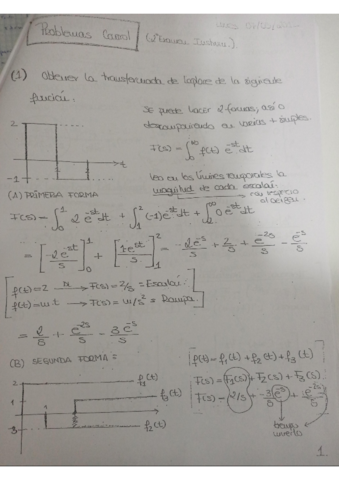 Problemas Canal
(1) Obtener la transformada de laplace de la siguiente
función.
Se puede hacer 2 formas, así o
descomponiendo en varios + simples.
F(s) = ∫₀^∞ f(t) e^{-st} dt
2
-1
t
Veo en los límites temporales la
magnitud de cada escalón.
(A) PRIMERA FORMA
F(s) = ∫₀¹ 2 e^{-st} dt + ∫₁² (-1) e^{-st} dt + ∫₂^∞ 0 e^{-st} dt
= [-2e^{-st}/s]₀¹ + [1e^{-st}/s]₁² = -2e^{-s}/s + 2/s + e^{-2s}/s - e^{-s}/s
f(t)=2 → F(s) = 2/s = Escalón.
f(t)=wt → F(s) = w/s² = Rampa.
= 2/s + e^{-2s}/s - 3e^{-s}/s
(B) SEGUNDA FORMA =
f(t) = f₁(t) + f₂(t) + f₃(t)
F(s) = F₁(s) + F₂(s) + F₃(s)
F(s) = 2/s + -3(e^{-s})/s + e^{-2s}/s
2
f₁(t)
1
f₃(t)
-3
f₂(t)
tiempo
1